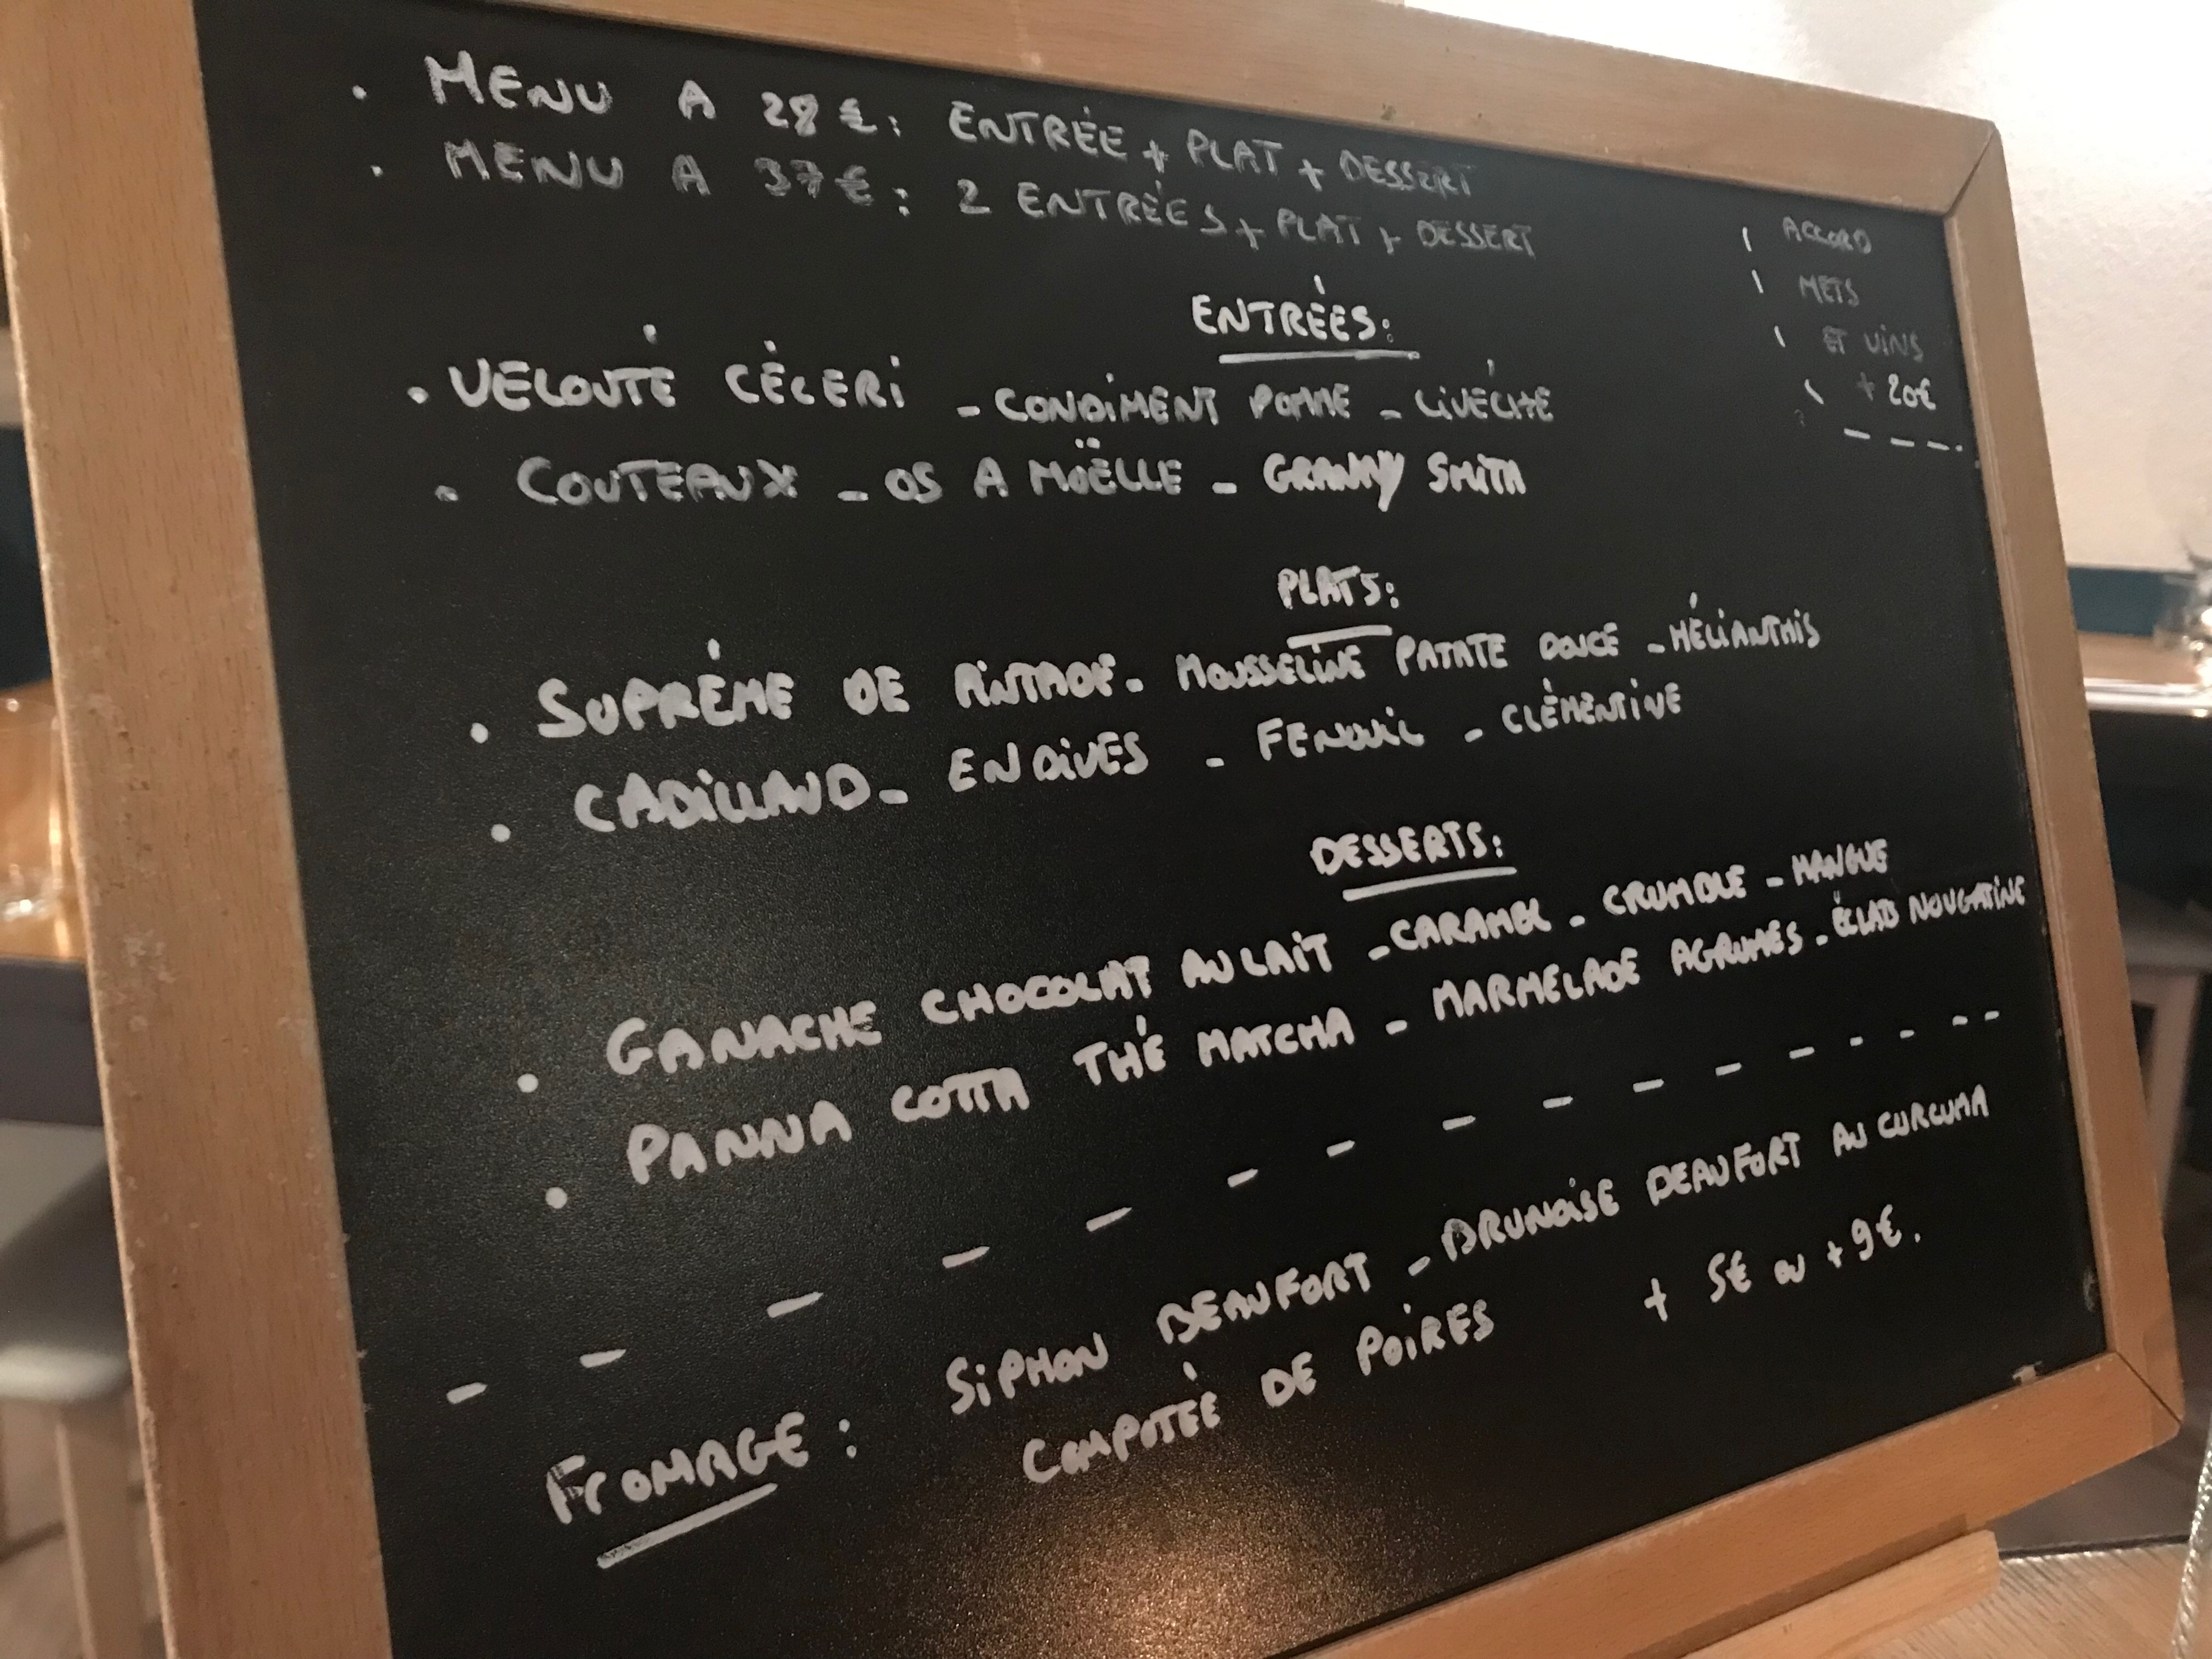 • MENU A 28 €: ENTRÉE + PLAT + DESSERT
• MENU A 37€: 2 ENTRÉES + PLAT + DESSERT
ACCORD
METS
ET VINS
+ 20€
ENTRÉES:
• VELOUTÉ CÉLERI - CONDIMENT POMME - LIVÉCHE
• COUTEAUX - OS A MOËLLE - GRANNY SMITH
PLATS:
• SUPRÉME DE PINTADE - MOUSSELINE PATATE DOUCE - HÉLIANTHIS
• CABILLAUD - ENDIVES - FENOUIL - CLÉMENTINE
DESSERTS:
• GANACHE CHOCOLAT AU LAIT - CARAMEL - CRUMBLE - MANGUE
• PANNA COTTA THÉ MATCHA - MARMELADE AGRUMES - ÉCLATS NOUGATINE
FROMAGE: SIPHON BEAUFORT - BRUNOISE BEAUFORT AU CURCUMA
COMPOTÉE DE POIRES + 5€ ou + 9€.